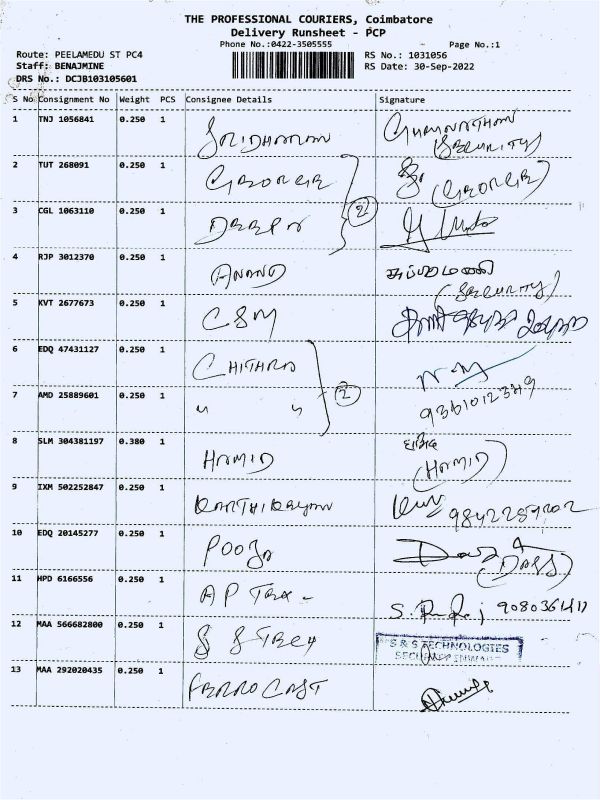 THE PROFESSIONAL COURIERS, Coimbatore
Delivery Runsheet - PCP
Phone No.:0422-3505555 Page No.:1
Route: PEELAMEDU ST PC4 RS No.: 1031056
Staff: BENAJMINE RS Date: 30-Sep-2022
DRS No.: DCJB103105601
S No Consignment No Weight PCS Consignee Details Signature
1 TNJ 1056841 0.250 1 SRIDHARAN GURUNATHAN
(SECURITY)
2 TUT 268091 0.250 1 GEORGE (GEORGE)
2
3 CGL 1063110 0.250 1
4 RJP 3012370 0.250 1 ANAND சுப்ரமணி
(SECURITY)
5 KVT 2677673 0.250 1 CSM
6 EDQ 47431127 0.250 1 CHITHRA
7 AMD 25889601 0.250 1 " " 2 9361012349
8 SLM 304381197 0.380 1 HAMID ஹமீத்
(HAMID)
9 IXM 502252847 0.250 1 KARTHIKEYAN
10 EDQ 20145277 0.250 1 POOJA
11 HPD 6166556 0.250 1 AP Tex -
12 MAA 566682800 0.250 1 S S TECH S & S TECHNOLOGIES
13 MAA 292020435 0.250 1 FERRO CAST